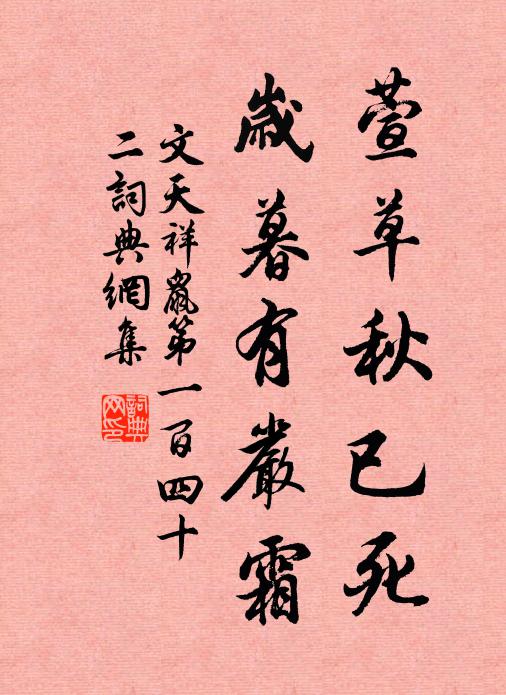 萱草秋已死
歲暮有嚴霜
文天祥鼠第一百四十
二詞典網集
詞典